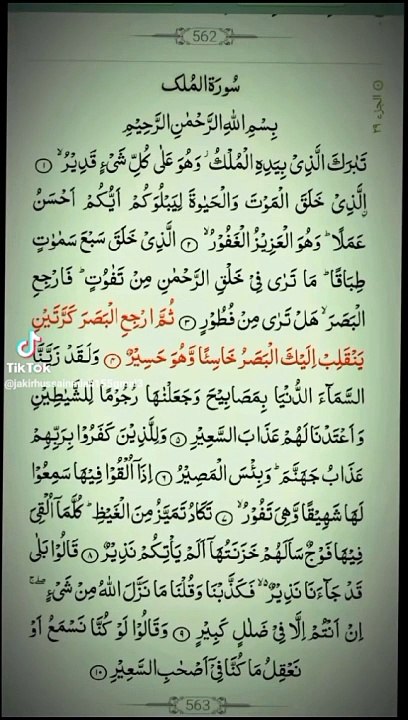 562
الجزء ٢٩
سُوْرَةُ الْمُلْك
بِسْمِ اللهِ الرَّحْمٰنِ الرَّحِيْمِ
تَبٰرَكَ الَّذِىْ بِيَدِهِ الْمُلْكُ ۫ وَهُوَ عَلٰى كُلِّ شَىْءٍ قَدِيْرُ ۙ ﴿١﴾
الَّذِىْ خَلَقَ الْمَوْتَ وَالْحَيٰوةَ لِيَبْلُوَكُمْ اَيُّكُمْ اَحْسَنُ
عَمَلًا ؕ وَهُوَ الْعَزِيْزُ الْغَفُوْرُ ۙ ﴿٢﴾ الَّذِىْ خَلَقَ سَبْعَ سَمٰوٰتٍ
طِبَاقًا ؕ مَا تَرٰى فِىْ خَلْقِ الرَّحْمٰنِ مِنْ تَفٰوُتٍ ؕ فَارْجِعِ
الْبَصَرَ ۙ هَلْ تَرٰى مِنْ فُطُوْرٍ ﴿٣﴾ ثُمَّ ارْجِعِ الْبَصَرَ كَرَّتَيْنِ
يَنْقَلِبْ اِلَيْكَ الْبَصَرُ خَاسِئًا وَّهُوَ حَسِيْرٌ ﴿٤﴾ وَلَقَدْ زَيَّنَّا
السَّمَآءَ الدُّنْيَا بِمَصَابِيْحَ وَجَعَلْنٰهَا رُجُوْمًا لِّلشَّيٰطِيْنِ
وَاَعْتَدْنَا لَهُمْ عَذَابَ السَّعِيْرِ ﴿٥﴾ وَلِلَّذِيْنَ كَفَرُوْا بِرَبِّهِمْ
عَذَابُ جَهَنَّمَ ؕ وَبِئْسَ الْمَصِيْرُ ﴿٦﴾ اِذَآ اُلْقُوْا فِيْهَا سَمِعُوْا
لَهَا شَهِيْقًا وَّهِىَ تَفُوْرُ ۙ ﴿٧﴾ تَكَادُ تَمَيَّزُ مِنَ الْغَيْظِ ؕ كُلَّمَاۤ اُلْقِىَ
فِيْهَا فَوْجٌ سَاَلَهُمْ خَزَنَتُهَاۤ اَلَمْ يَاْتِكُمْ نَذِيْرٌ ﴿٨﴾ قَالُوْا بَلٰى
قَدْ جَآءَنَا نَذِيْرٌ ۙ فَكَذَّبْنَا وَقُلْنَا مَا نَزَّلَ اللهُ مِنْ شَىْءٍ ۖۚ
اِنْ اَنْتُمْ اِلَّا فِىْ ضَلٰلٍ كَبِيْرٍ ﴿٩﴾ وَقَالُوْا لَوْ كُنَّا نَسْمَعُ اَوْ
نَعْقِلُ مَا كُنَّا فِىْۤ اَصْحٰبِ السَّعِيْرِ ﴿١٠﴾
563
TikTok